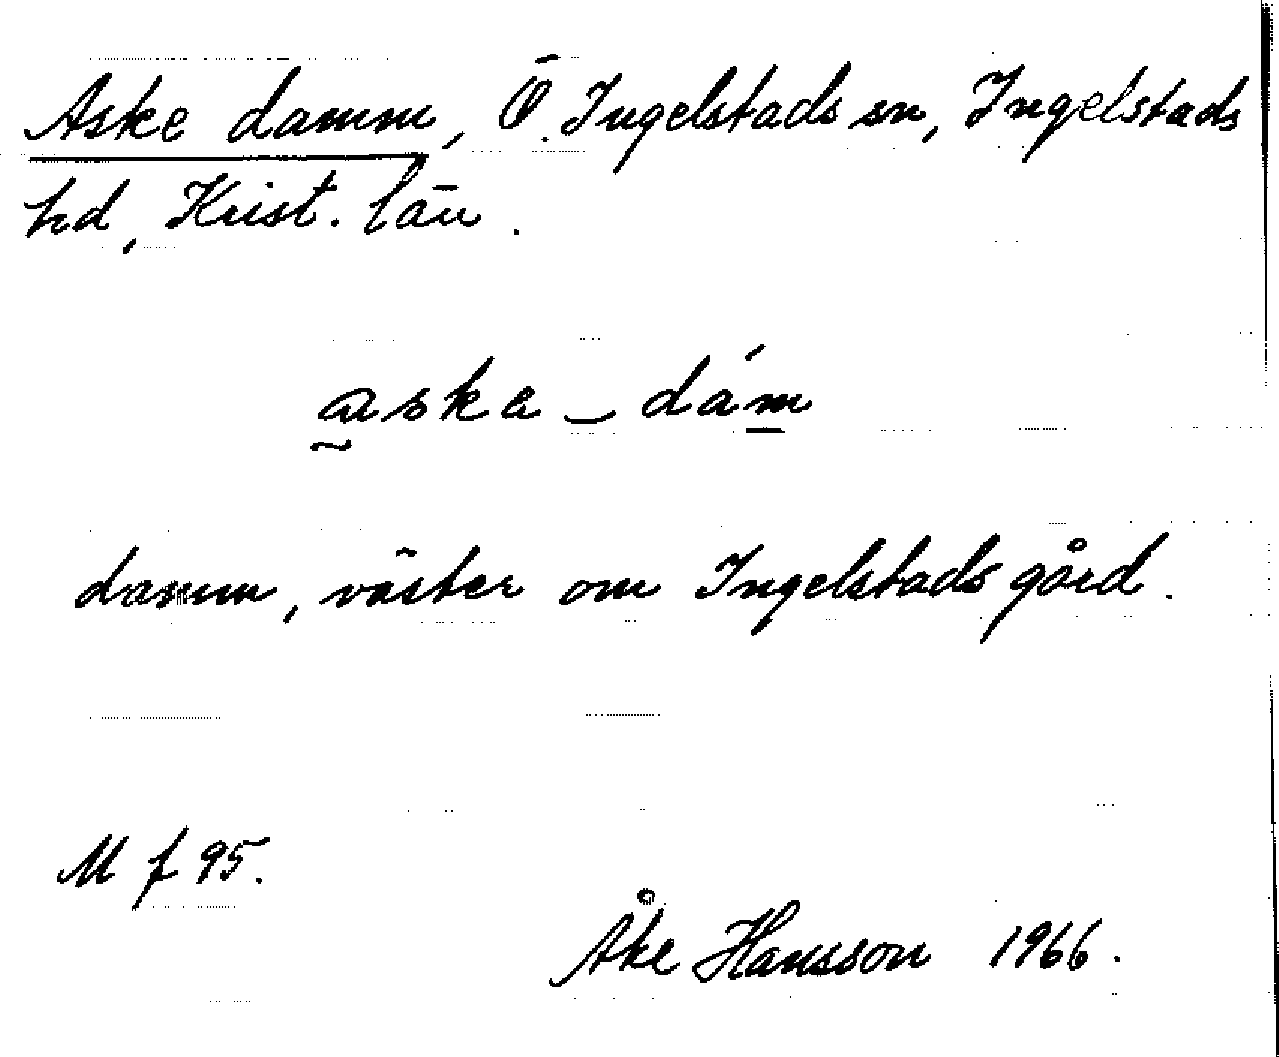 Aske damm, Ö. Ingelstads sn, Ingelstads
hd, Krist. län.
aska‿dám
damm, väster om Ingelstads gård.
M f 95.
Åke Hansson 1966.